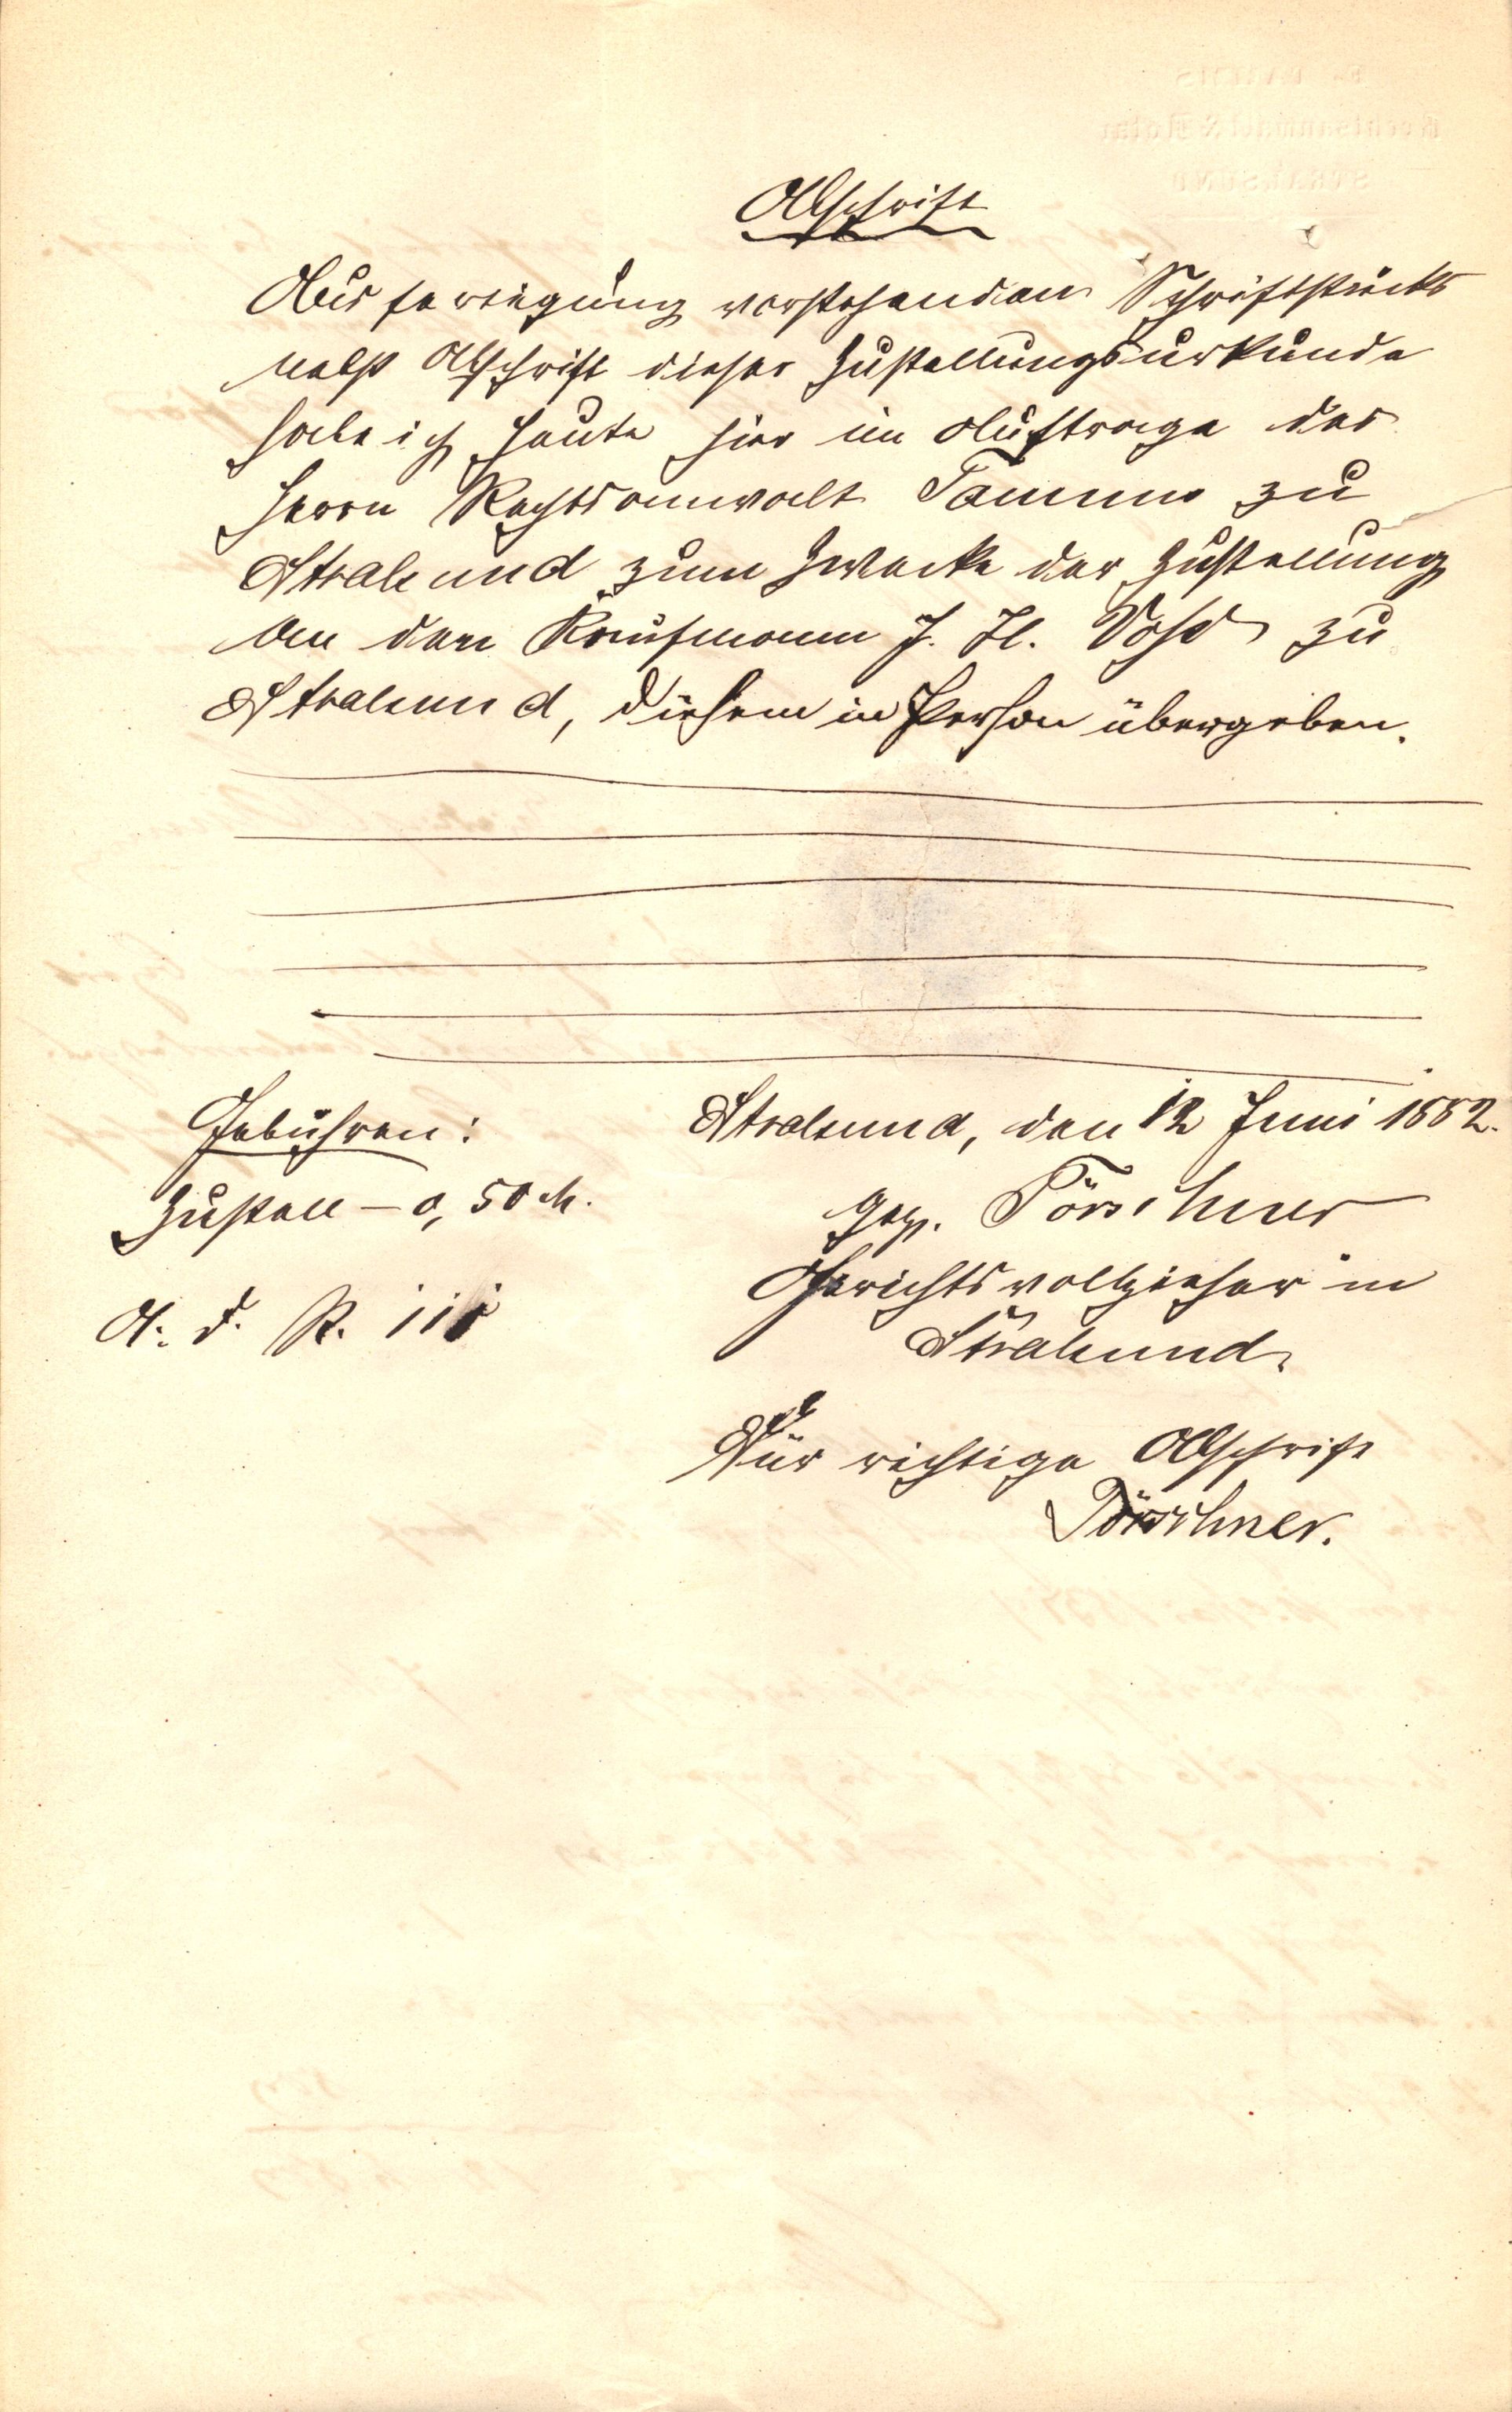 Abschrift
Ausfertigung vorstehenden Schriftstücks
nebst Abschrift dieser Zustellungsurkunde
habe ich heute hier im Auftrage des
Herrn Rechtsanwalt Tamms zu
Stralsund zum Zwecke der Zustellung
an den Kaufmann J. H. zu
Stralsund, diesem in Person übergeben.
Gebühren:
Zustell – 0,50 M.
D. R. 111
Stralsund, den 12 Juni 1882.
gez. Törschner
Gerichtsvollzieher in
Stralsund
Für richtige Abschrift
Törschner.